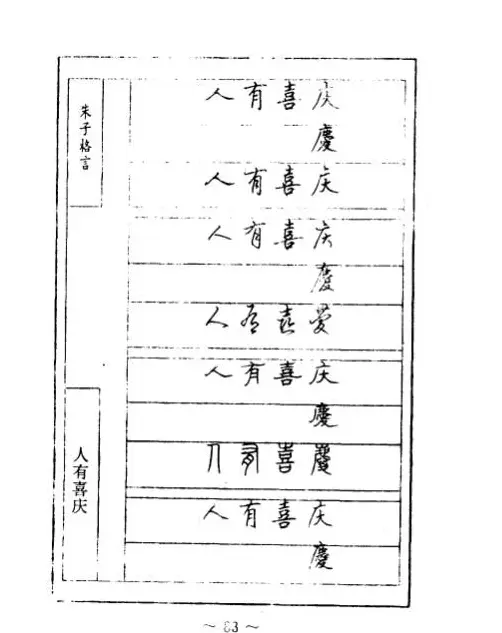 朱子格言
人有喜庆
人有喜庆
慶
人有喜庆
人有喜庆
慶
人有喜慶
人有喜庆
慶
人有喜慶
人有喜庆
慶
~ 83 ~